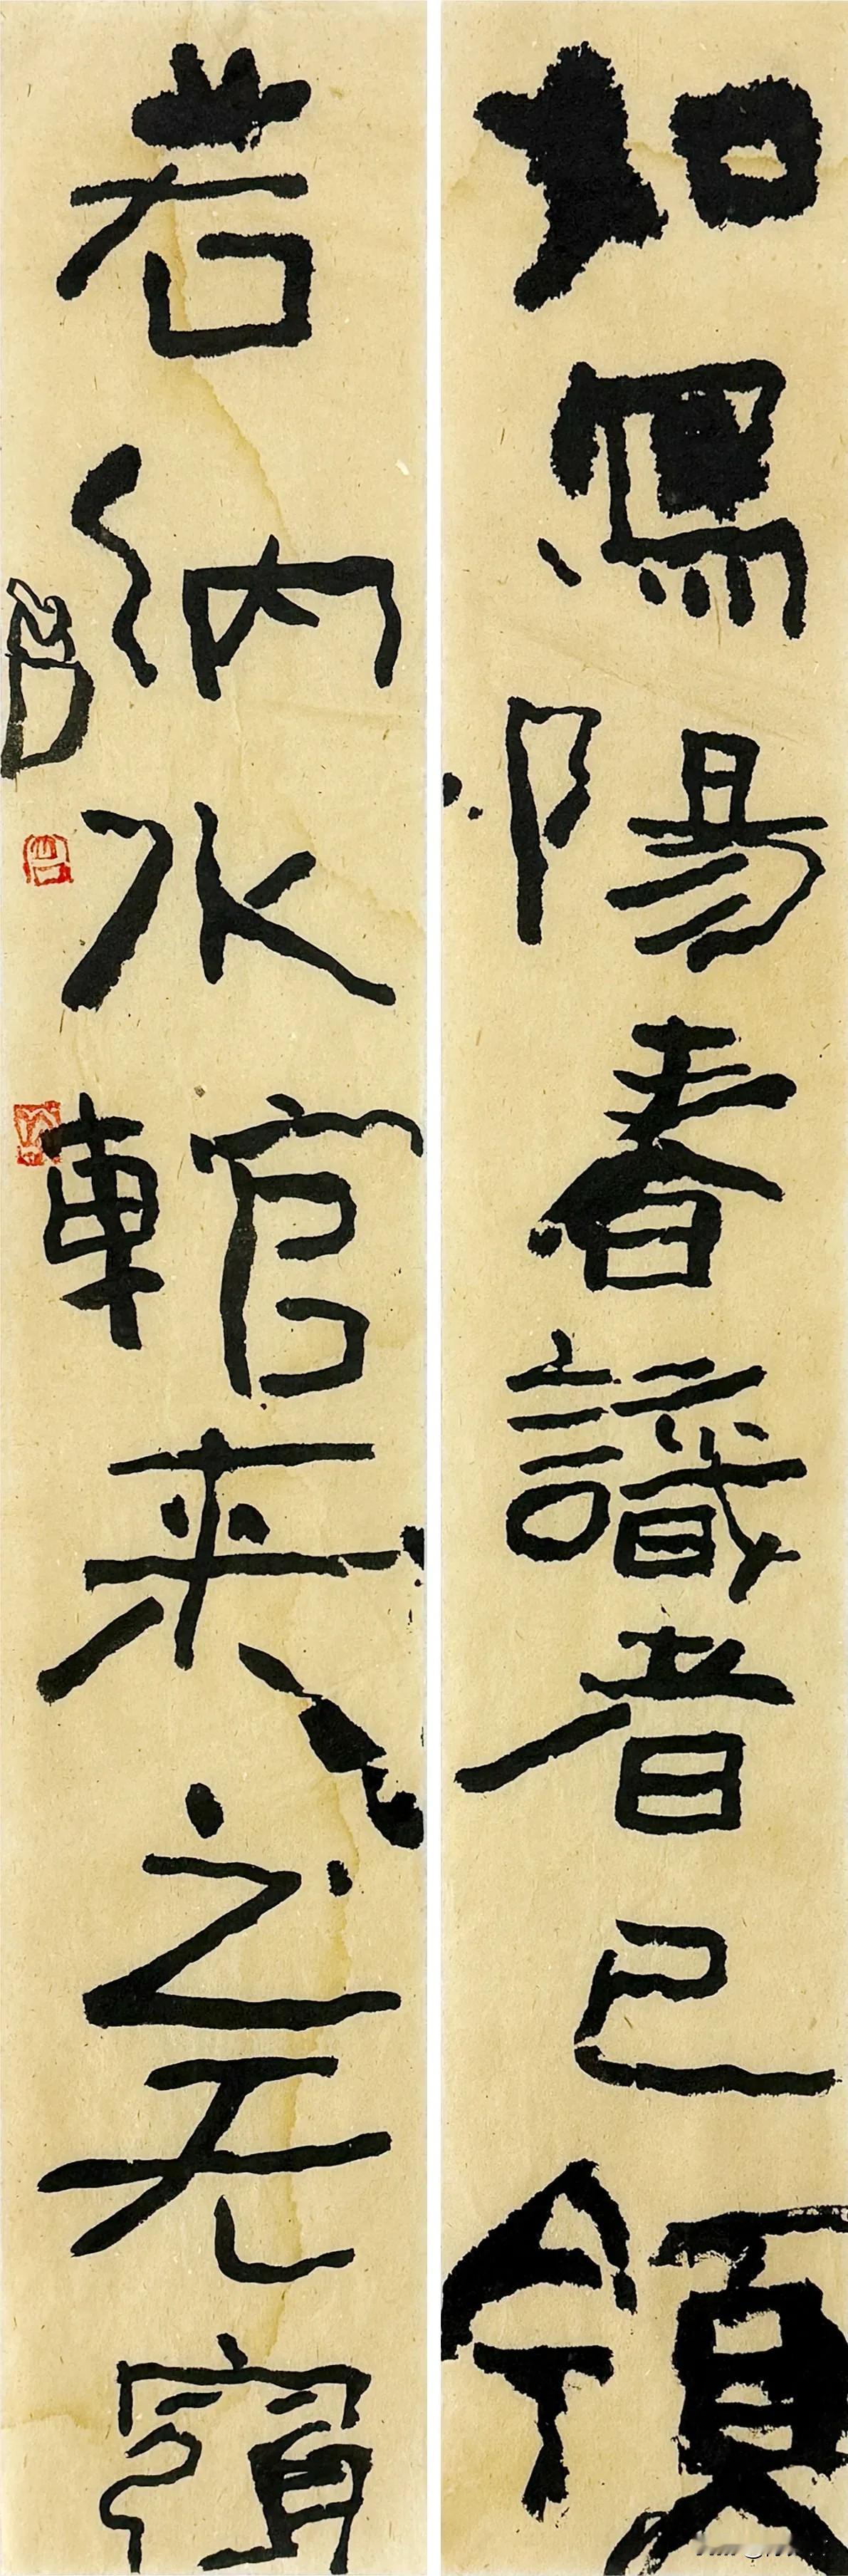 如寫陽春識者已領
若納水輨來之无窮